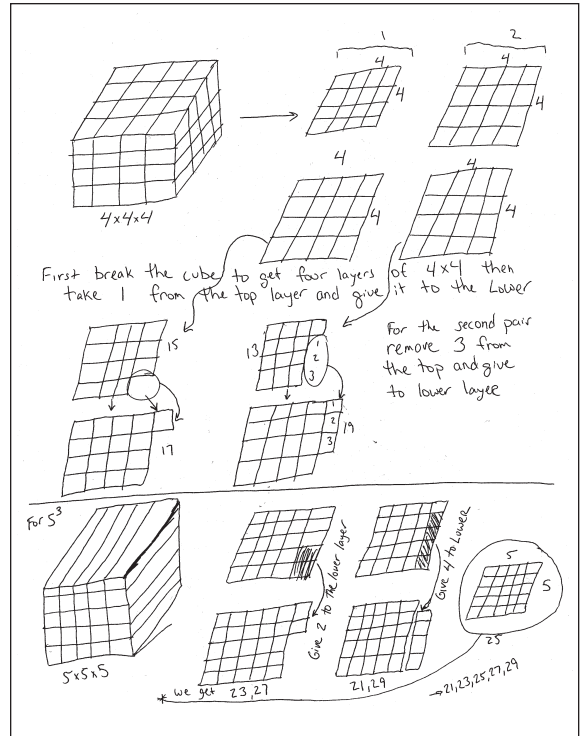 1
2
4
4
4
4
4×4×4
4
4
4
4
First break the cube to get four layers of 4×4 then
take 1 from the top layer and give it to the Lower
15
17
13
1
2
3
1
2
3
19
For the second pair
remove 3 from
the top and give
to lower layer
For 5³
5×5×5
Give 2 to the lower layer
Give 4 to Lower
5
5
25
* we get 23,27
21,29
→21,23,25,27,29